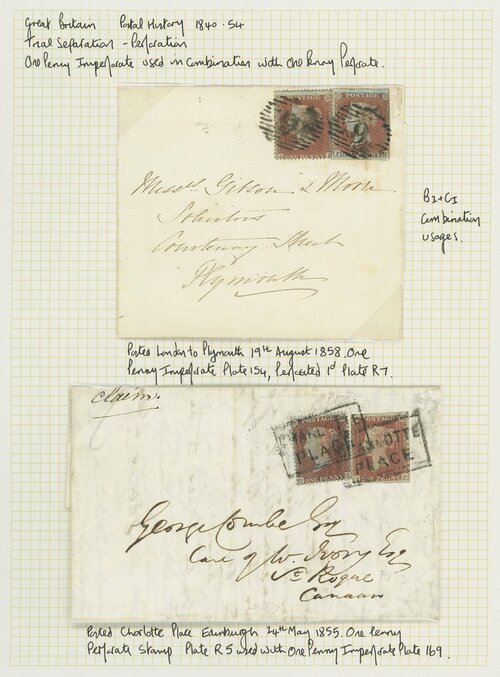 Great Britain Postal History 1840-54
Trial Separation - Perforation
One Penny Imperforate used in Combination with One Penny Perforate.
POSTAGE
POSTAGE
ONE PENNY
Messrs Gibson & Moore
Solicitors
Courtenay Street
Plymouth
B2+C1
Combination
usages.
Posted London to Plymouth 19th August 1858. One
Penny Imperforate Plate 154, Perforated 1d Plate R7.
Claim.
PLACE
CHARLOTTE
PLACE
ONE PENNY
George Combe Esq
Care of W. Ivory Esq
St Roque
Canaan
Posted Charlotte Place Edinburgh 24th May 1855. One Penny
Perforate Stamp Plate R5 used with One Penny Imperforate Plate 169.